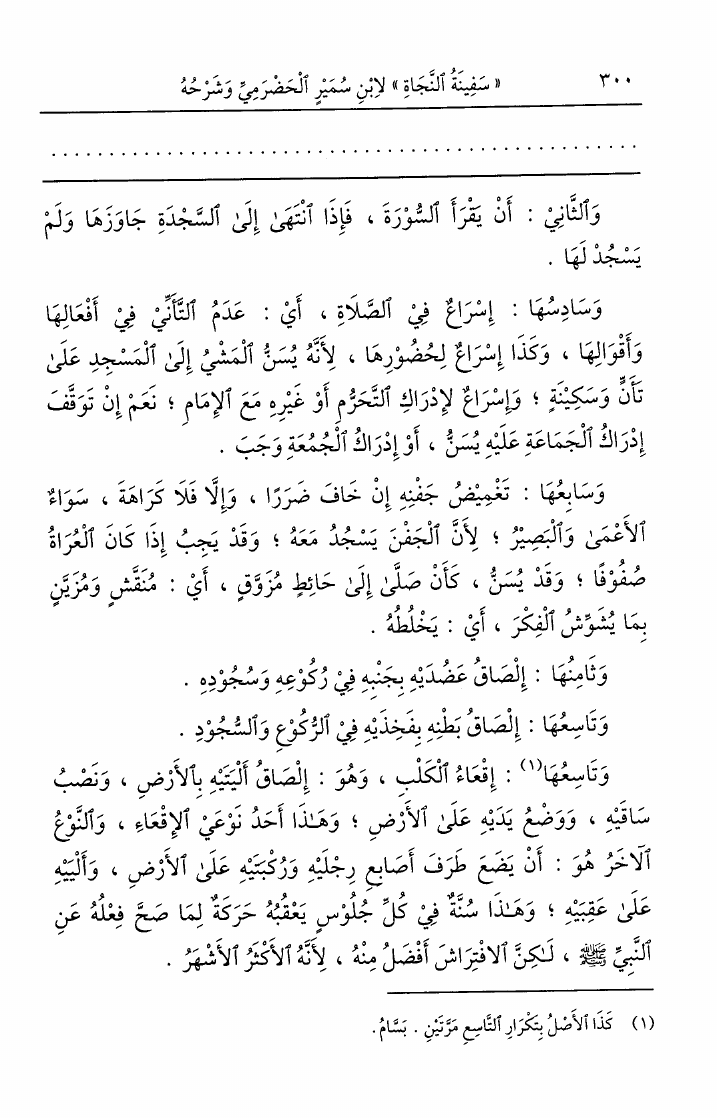 ٣٠٠ « سَفِيْنَةُ ٱلنَّجَاةِ » لِابْنِ سُمَيْرٍ ٱلْحَضْرَمِيِّ وَشَرْحُهُ
وَٱلثَّانِيْ : أَنْ يَقْرَأَ ٱلسُّوْرَةَ ، فَإِذَا ٱنْتَهَىٰ إِلَىٰ ٱلسَّجْدَةِ جَاوَزَهَا وَلَمْ
يَسْجُدْ لَهَا .
وَسَادِسُهَا : إِسْرَاعٌ فِيْ ٱلصَّلَاةِ ، أَيْ : عَدَمُ ٱلتَّأَنِّيْ فِيْ أَفْعَالِهَا
وَأَقْوَالِهَا ، وَكَذَا إِسْرَاعٌ لِحُضُوْرِهَا ، لِأَنَّهُ يُسَنُّ ٱلْمَشْيُ إِلَىٰ ٱلْمَسْجِدِ عَلَىٰ
تَأَنٍّ وَسَكِيْنَةٍ ؛ وَإِسْرَاعٌ لِإِدْرَاكِ ٱلتَّحَرُّمِ أَوْ غَيْرِهِ مَعَ ٱلإِمَامِ ؛ نَعَمْ إِنْ تَوَقَّفَ
إِدْرَاكُ ٱلْجَمَاعَةِ عَلَيْهِ يُسَنُّ ، أَوْ إِدْرَاكُ ٱلْجُمُعَةِ وَجَبَ .
وَسَابِعُهَا : تَغْمِيْضُ جَفْنِهِ إِنْ خَافَ ضَرَرًا ، وَإِلَّا فَلَا كَرَاهَةَ ، سَوَاءٌ
ٱلأَعْمَىٰ وَٱلْبَصِيْرُ ؛ لِأَنَّ ٱلْجَفْنَ يَسْجُدُ مَعَهُ ؛ وَقَدْ يَجِبُ إِذَا كَانَ ٱلْعُرَاةُ
صُفُوْفًا ؛ وَقَدْ يُسَنُّ ، كَأَنْ صَلَّىٰ إِلَىٰ حَائِطٍ مُزَوَّقٍ ، أَيْ : مُنَقَّشٍ وَمُزَيَّنٍ
بِمَا يُشَوِّشُ ٱلْفِكْرَ ، أَيْ : يَخْلُطُهُ .
وَثَامِنُهَا : إِلْصَاقُ عَضُدَيْهِ بِجَنْبِهِ فِيْ رُكُوْعِهِ وَسُجُوْدِهِ .
وَتَاسِعُهَا : إِلْصَاقُ بَطْنِهِ بِفَخِذَيْهِ فِيْ ٱلرُّكُوْعِ وَٱلسُّجُوْدِ .
وَتَاسِعُهَا(١) : إِقْعَاءُ ٱلْكَلْبِ ، وَهُوَ : إِلْصَاقُ أَلْيَتَيْهِ بِٱلأَرْضِ ، وَنَصْبُ
سَاقَيْهِ ، وَوَضْعُ يَدَيْهِ عَلَىٰ ٱلأَرْضِ ؛ وَهَـٰذَا أَحَدُ نَوْعَيْ ٱلإِقْعَاءِ ، وَٱلنَّوْعُ
ٱلآخَرُ هُوَ : أَنْ يَضَعَ طَرَفَ أَصَابِعِ رِجْلَيْهِ وَرُكْبَتَيْهِ عَلَىٰ ٱلأَرْضِ ، وَأَلْيَيْهِ
عَلَىٰ عَقِبَيْهِ ؛ وَهَـٰذَا سُنَّةٌ فِيْ كُلِّ جُلُوْسٍ يَعْقُبُهُ حَرَكَةٌ لِمَا صَحَّ فِعْلُهُ عَنِ
ٱلنَّبِيِّ ﷺ ، لَـٰكِنَّ ٱلافْتِرَاشَ أَفْضَلُ مِنْهُ ، لِأَنَّهُ ٱلأَكْثَرُ ٱلأَشْهَرُ .
(١) كَذَا ٱلأَصْلُ بِتَكْرَارِ ٱلتَّاسِعِ مَرَّتَيْنِ . بَسَّامُ.